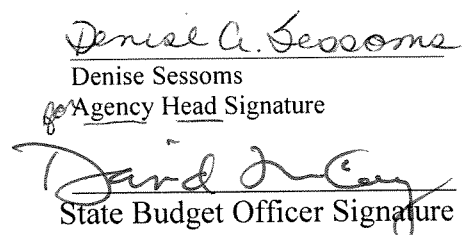 Denise A. Sessoms
Denise Sessoms
for Agency Head Signature
David McCoy
State Budget Officer Signature